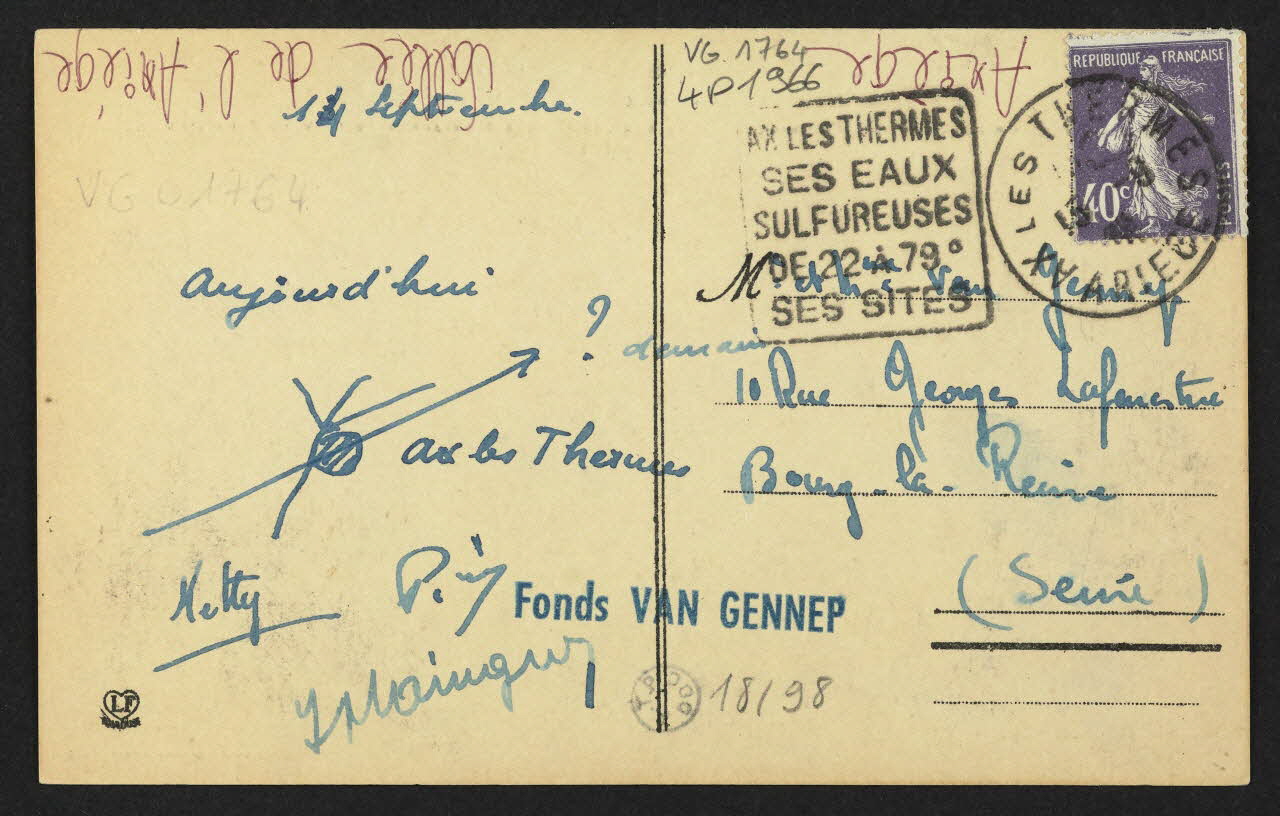 Vallée de l'Ariège
Ariège
VG. 1764
4P1966
14 Septembre.
VG 01764
Aujourd'hui
?
demain
Ax les Thermes
Ketty
Fonds VAN GENNEP
18/98
LF
TOULOUSE
REPUBLIQUE FRANÇAISE
40c
POSTES
AX LES THERMES
ARIEGE
AX LES THERMES
SES EAUX
SULFUREUSES
DE 22 À 79°
SES SITES
Mr et Mme Van Gennep
10 Rue Georges Lafenestre
Bourg-la-Reine
(Seine)